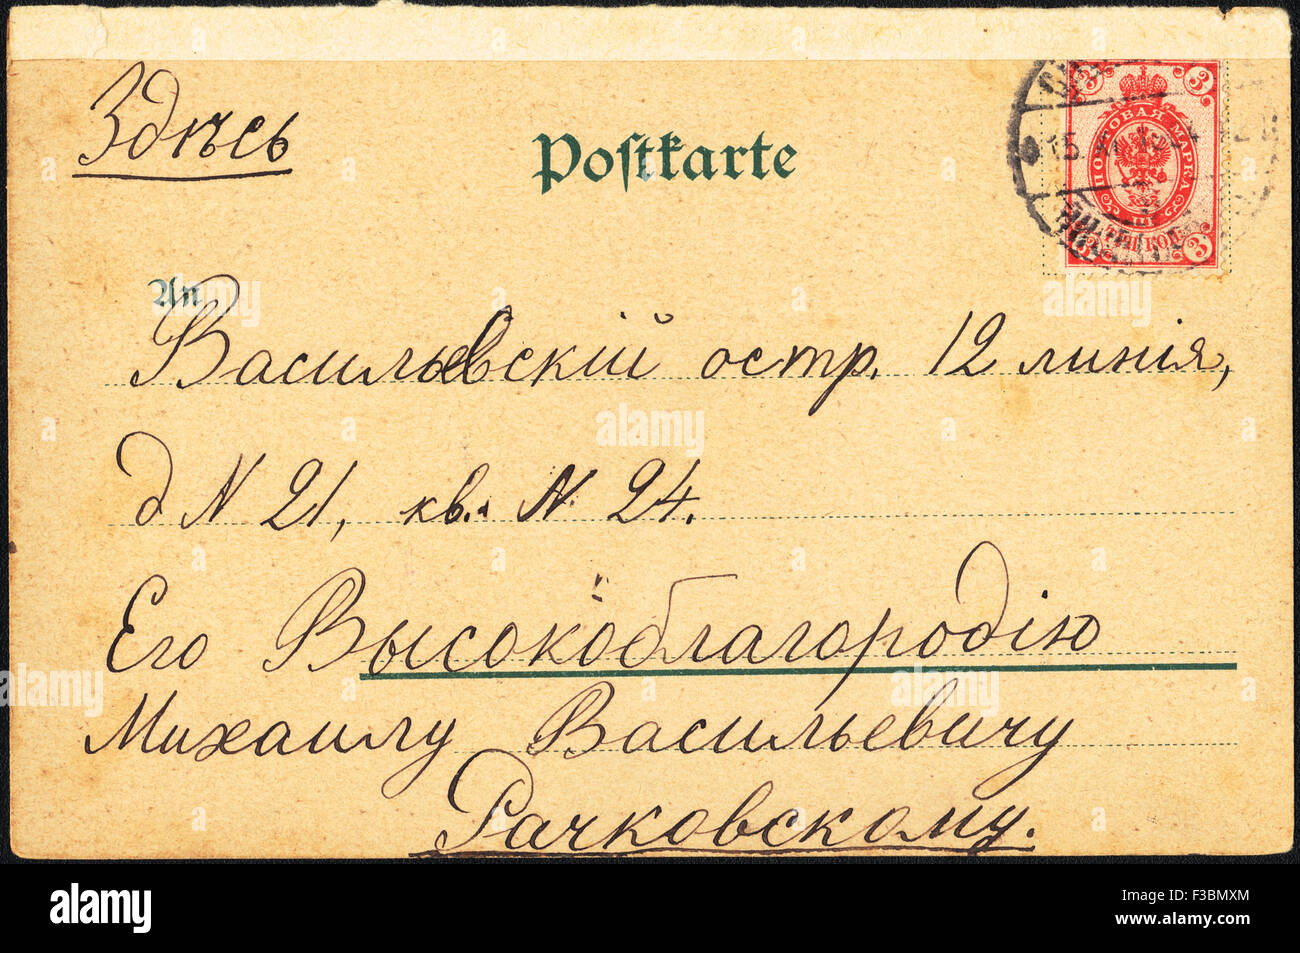 Здѣсь
Postkarte
3 3
ПОЧТОВАЯ МАРКА
ТРИ КОП.
3
An
Васильевскій остр. 12 линія,
д N 21, кв. N 24.
Его Высокоблагородію
Михаилу Васильевичу
Рачковскому.
alamy
Image ID: F3BMXM
www.alamy.com